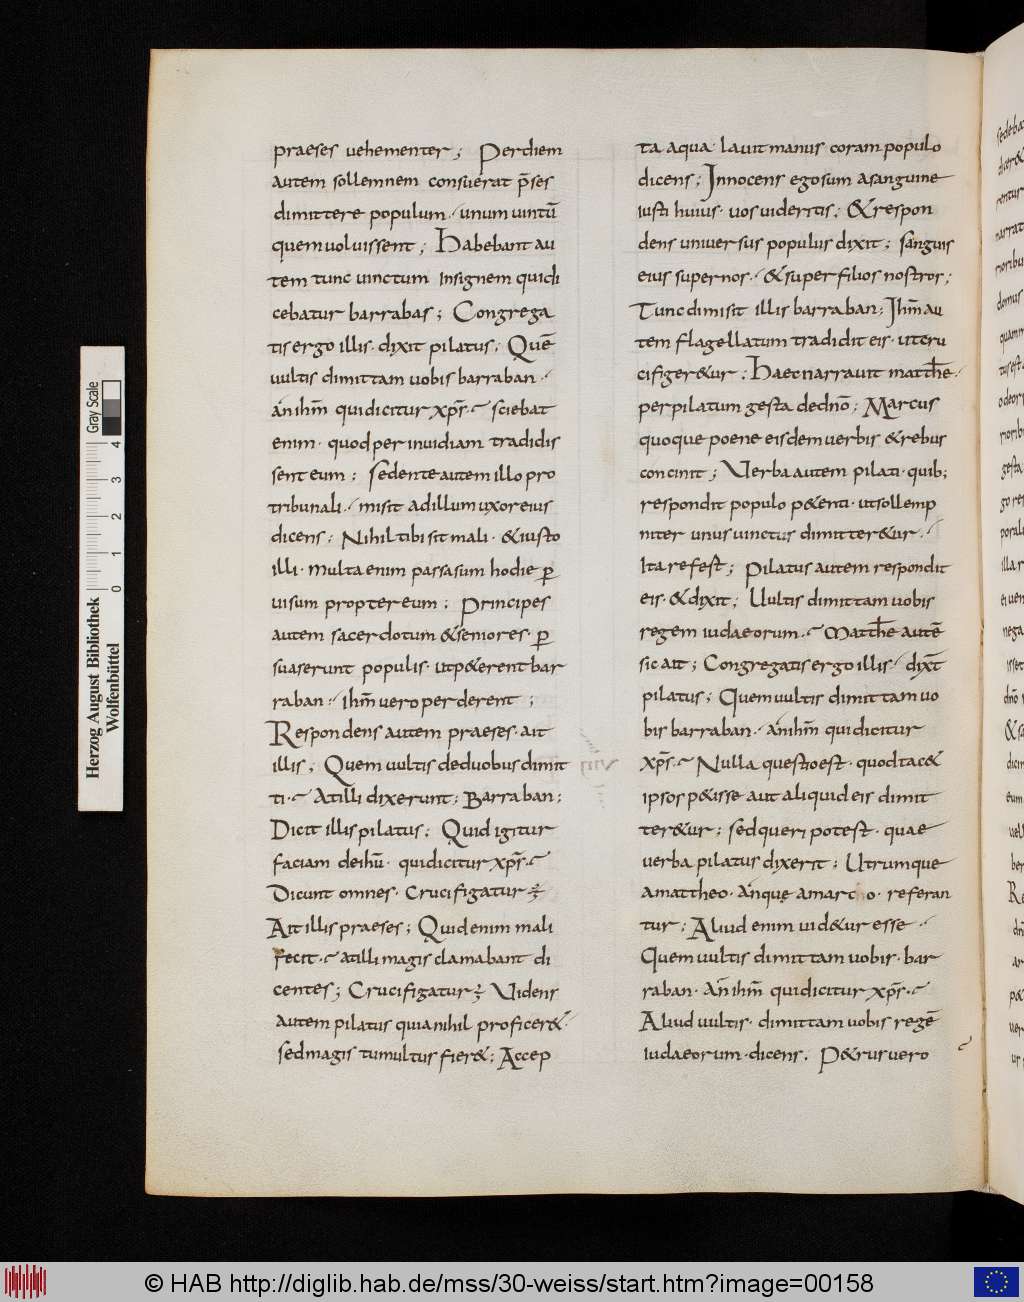 praeses uehementer; Perdiem
autem sollemnem consuerat p̄ses
dimittere populum · unum uinctū
quem uoluissent; Habebant au
tem tunc uinctum insignem quidi
cebatur barrabas; Congrega
tis ergo illis · dixit pilatus; Quē
uultis dimittam uobis barraban ·
an ihm̄ qui dicitur xpr̄s · sciebat
enim · quod per inuidiam tradidis
sent eum; Sedente autem illo pro
tribunali · misit ad illum uxor eius
dicens; Nihil tibi sit mali · & iusto
illi · multa enim passa sum hodie p̄
uisum propter eum; Principes
autem sacerdotum & seniores · p̄
suaserunt populis · ut p&erent bar
raban · ihm̄ uero perderent;
Respondens autem praeses · ait
illis; Quem uultis de duobus dimit
ti · At illi dixerunt; Barraban;
Dicit illis pilatus; Quid igitur
faciam de ihū · qui dicitur xpr̄s ·
Dicunt omnes · Crucifigatur
Ait illis praeses; Quid enim mali
fecit · at illi magis clamabant di
centes; Crucifigatur Videns
autem pilatus quia nihil proficer& ·
sed magis tumultus fier&; Accep
ta aqua lauit manus coram populo
dicens; Innocens ego sum a sanguine
iusti huius · uos uideritis; & respon
dens uniuersus populus dixit; sanguis
eius super nos · & super filios nostros;
Tunc dimisit illis barraban; Ihm̄ au
tem flagellatum tradidit eis · ut cru
cifiger&ur; Haec narrauit matthe ·
per pilatum gesta de dnō; Marcus
quoque poene eisdem uerbis & rebus
concinit; Verba autem pilati · quib;
respondit populo p&enti · ut sollemp
niter unus uinctus dimitter&ur ·
Ita refest; Pilatus autem respondit
eis · & dixit; Uultis dimittam uobis
regem iudaeorum · Matthe autē
sic ait; Congregatis ergo illis · dixt
pilatus; Quem uultis dimittam uo
bis barraban · an ihm̄ qui dicitur
xpr̄s · Nulla questio est · quod tac&
ipsos p&isse aut aliquid eis dimit
ter&ur; sed queri potest · quae
uerba pilatus dixerit; Utrum que
a mattheo · an quę a marco · referan
tur; Aliud enim uid&ur esse ·
Quem uultis dimittam uobis · bar
raban · An ihm̄ qui dicitur xpr̄s ·
Aliud uultis · dimittam uobis regē
iudaeorum · dicens. P&rus uero
Herzog August Bibliothek
Wolfenbüttel
Gray Scale
0 1 2 3 4
© HAB http://diglib.hab.de/mss/30-weiss/start.htm?image=00158